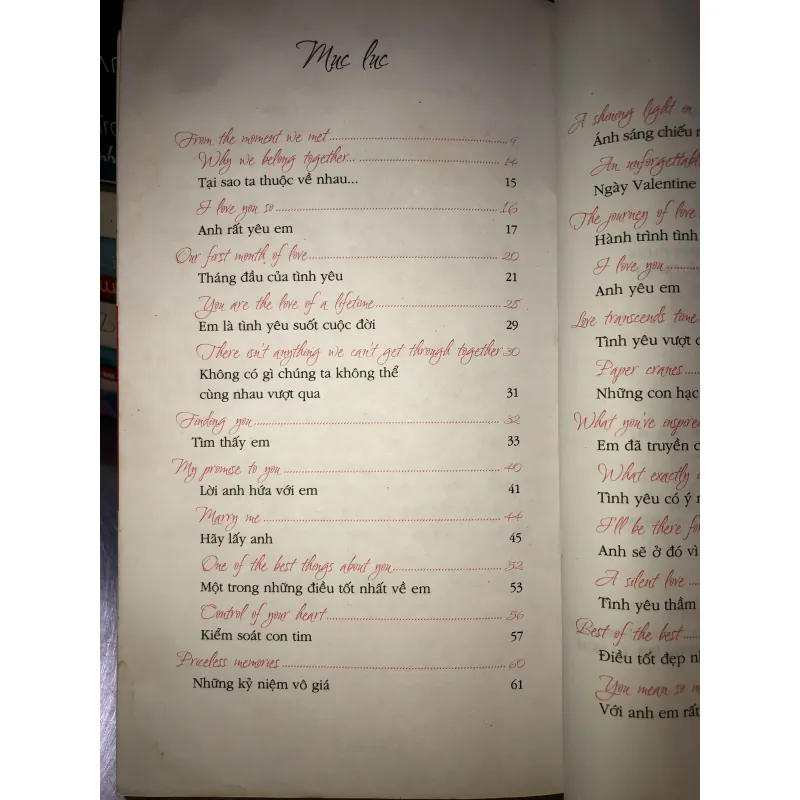 Mục lục
From the moment we met 9
Why we belong together... 14
Tại sao ta thuộc về nhau... 15
I love you so 16
Anh rất yêu em 17
Our first month of love 20
Tháng đầu của tình yêu 21
You are the love of a lifetime 25
Em là tình yêu suốt cuộc đời 29
There isn't anything we can't get through together 30
Không có gì chúng ta không thể
cùng nhau vượt qua 31
Finding you 32
Tìm thấy em 33
My promise to you 40
Lời anh hứa với em 41
Marry me 44
Hãy lấy anh 45
One of the best things about you 52
Một trong những điều tốt nhất về em 53
Control of your heart 56
Kiểm soát con tim 57
Priceless memories 60
Những kỷ niệm vô giá 61
A shining light on
Ánh sáng chiếu
An unforgettabl
Ngày Valentine
The journey of love
Hành trình tình
I love you
Anh yêu em
Love transcends time
Tình yêu vượt
Paper cranes
Những con hạc
What you've inspired
Em đã truyền
What exactly
Tình yêu có ý
I'll be there for
Anh sẽ ở đó vì
A silent love
Tình yêu thầm
Best of the best
Điều tốt đẹp
You mean so
Với anh em rất